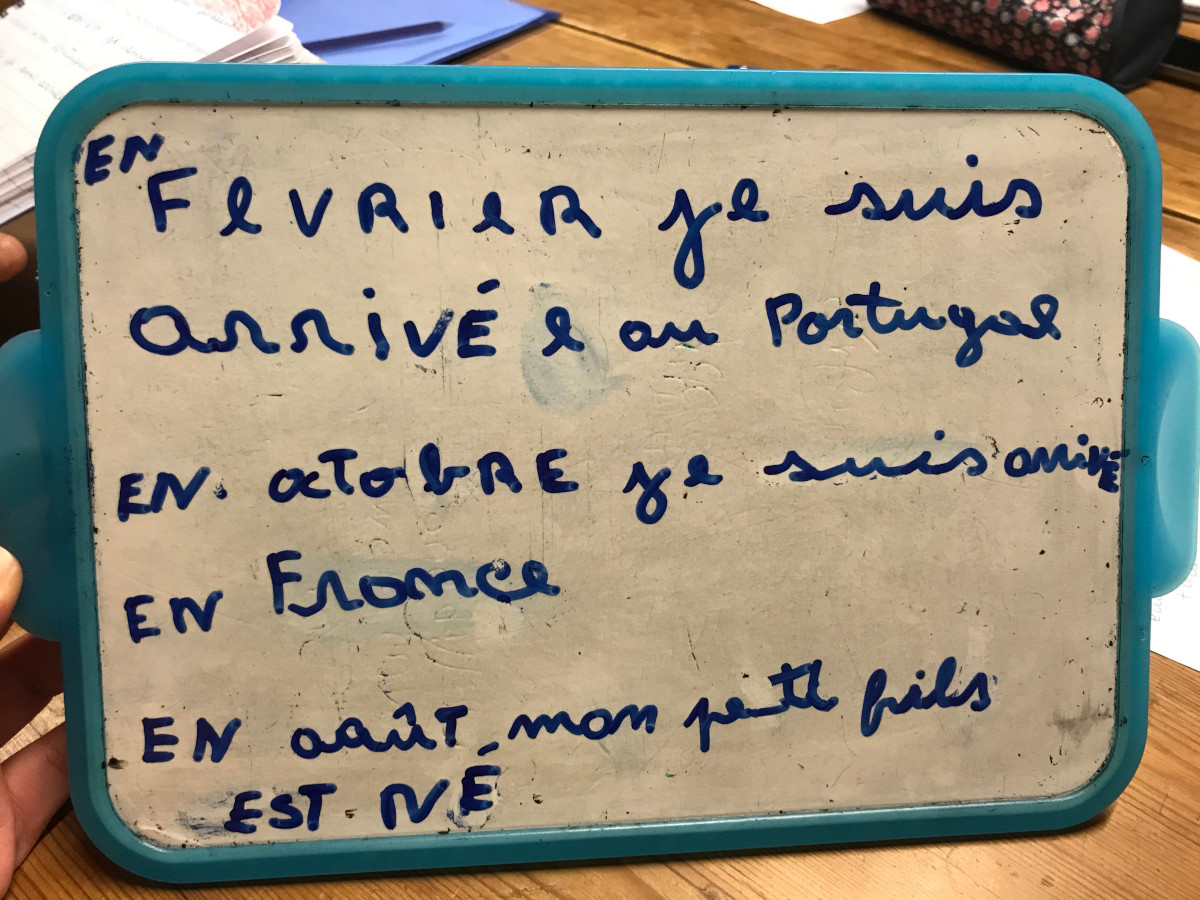 EN
FeVRIeR je suis
arrivÉ e au Portugal
EN. octobRE je suis arrivÉ
EN France
EN aaûT mon petit fils
EST NÉ